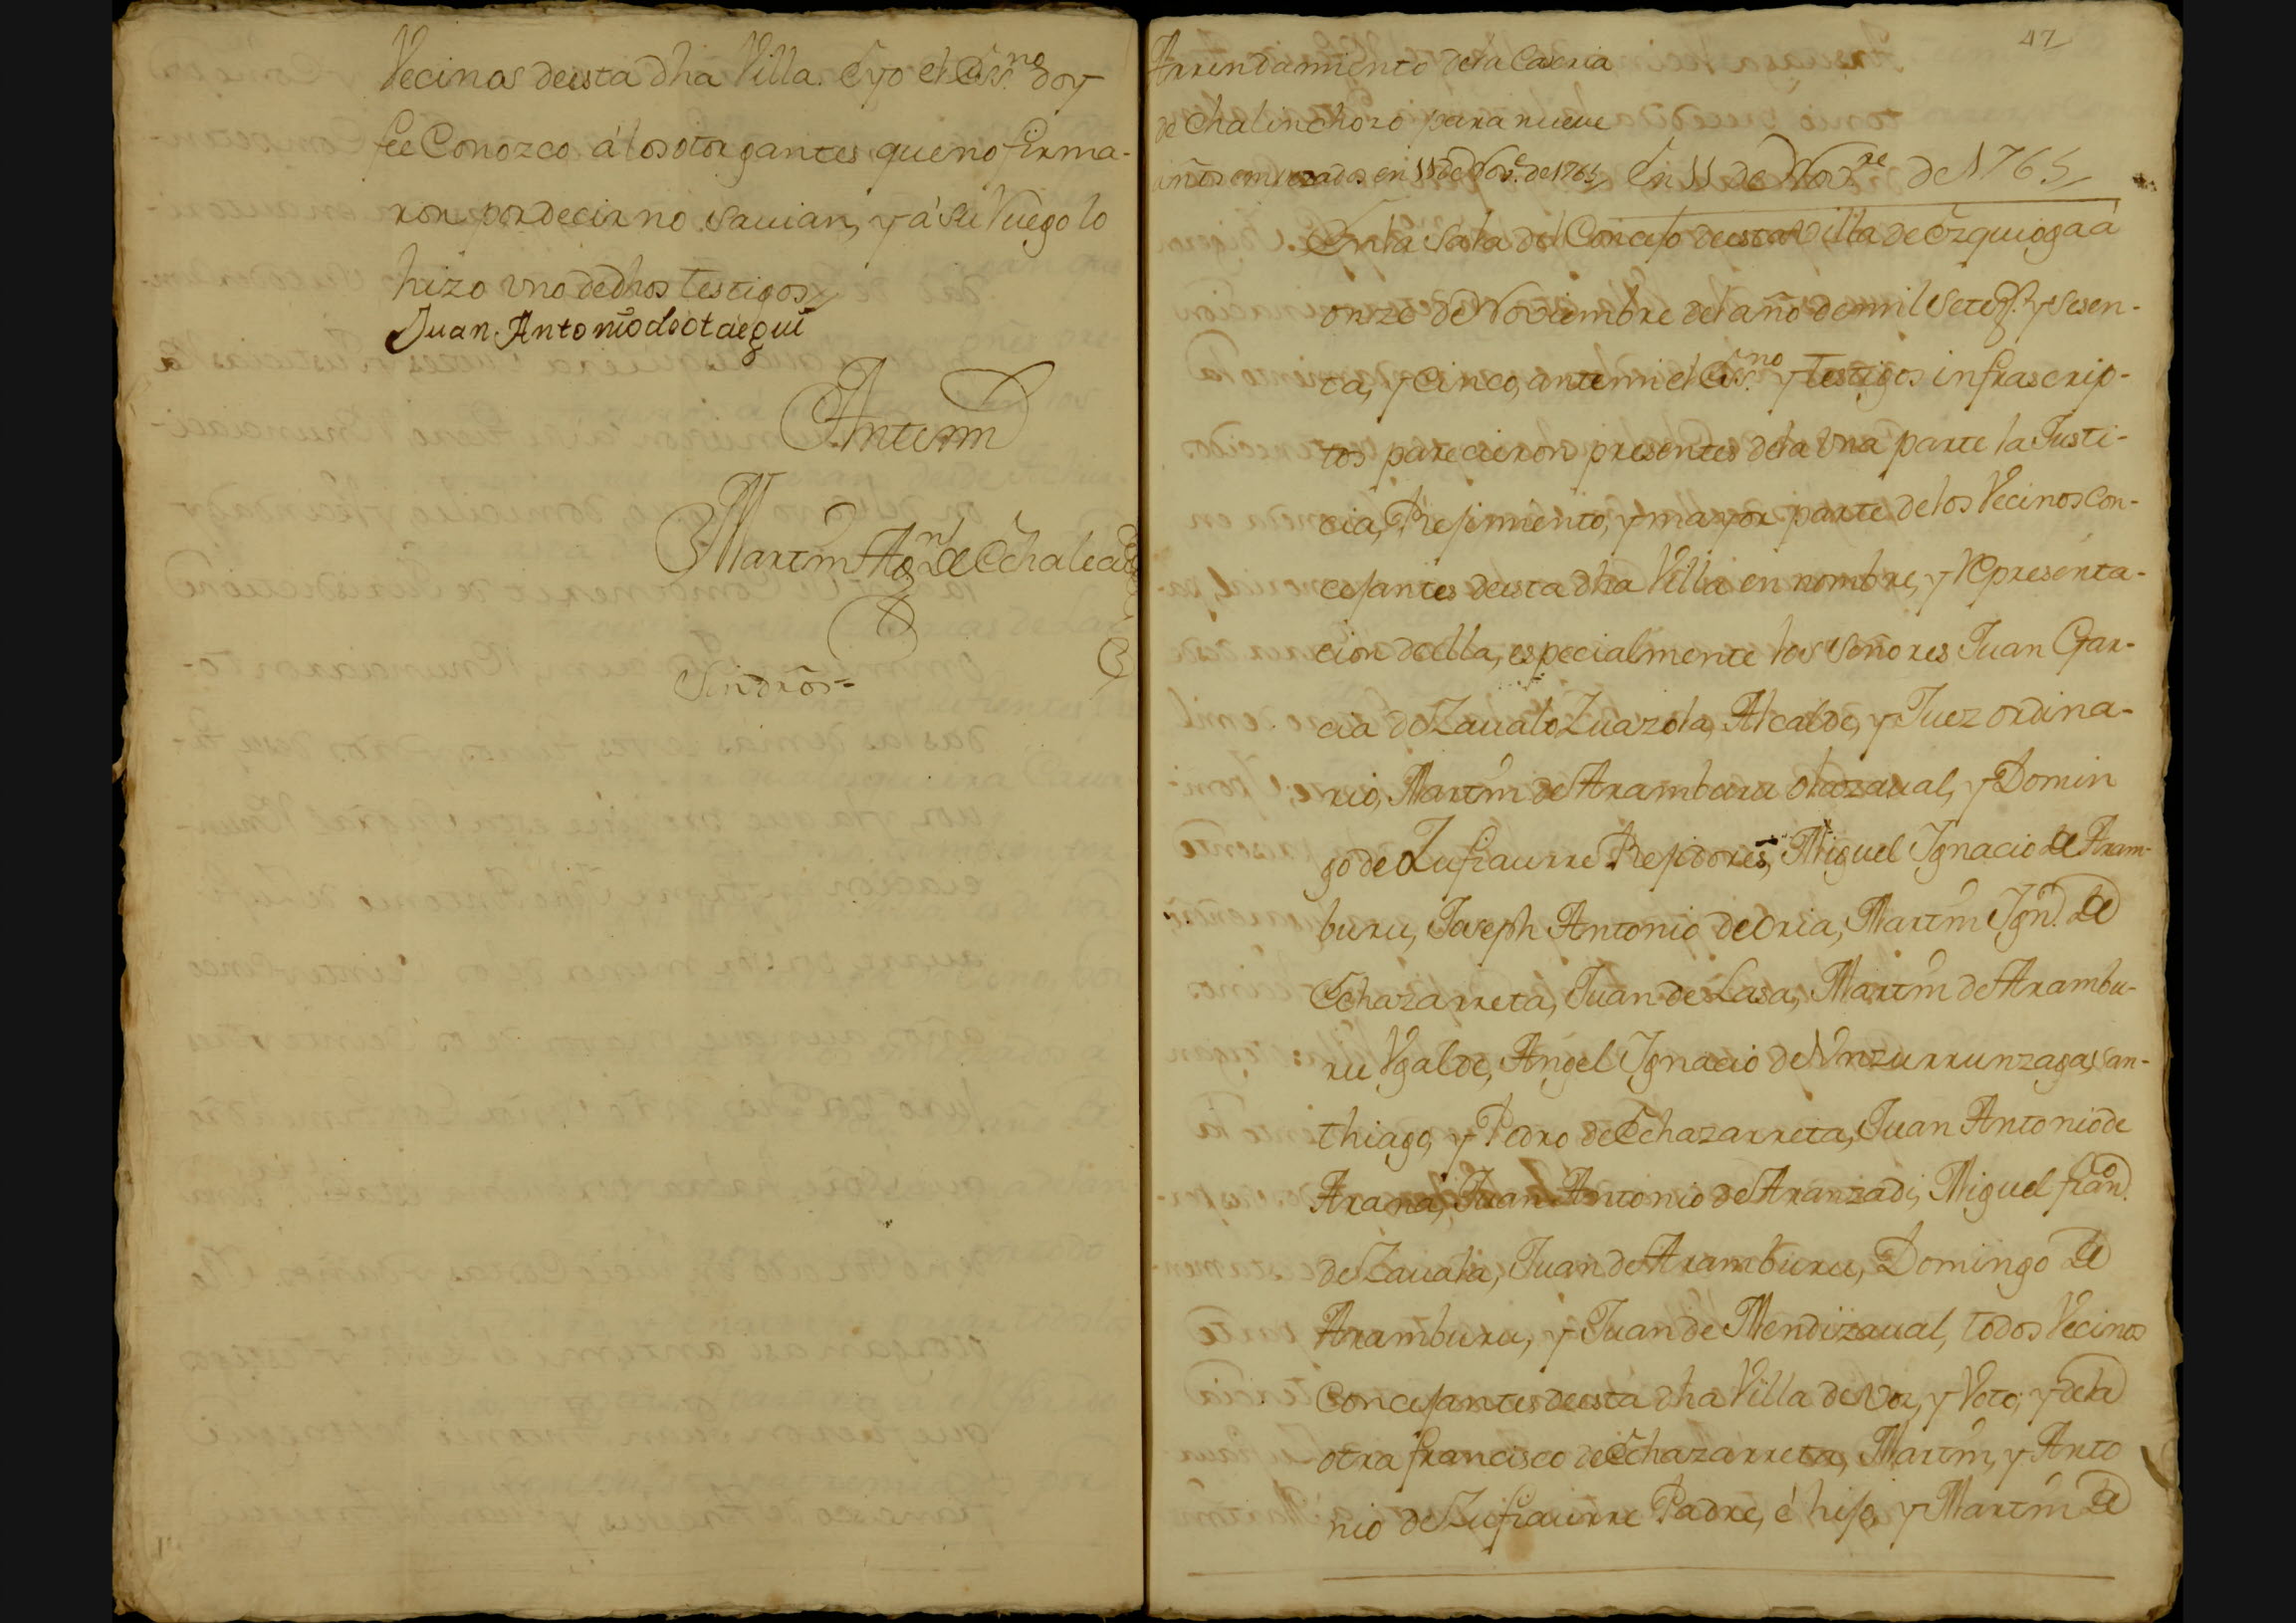 Vecinos de esta dha Villa. E yo el Esno. doy
fee Conozco á los otorgantes, que no firma-
ron por decir no sauian, y á su Ruego lo
hizo uno de dhos testigos
Juan Antonio de otaegui
Ante mi
Martin Anto. de Echalea
Sin dros =
47
Arrendamiento de la Caseria
de Chalinchoro para nueue
años empezados en 11 de Nove. de 1765 En 11 de Novre. de 1765
En la Sala del Concejo de esta Villa de Ezquioga á
onze de Noviembre del año de mil setezs. y sesen-
ta, y cinco, ante mi el Esno. y testigos infrascrip-
tos parecieron presentes de la Una parte la Justi-
cia, Rejimiento, y mayor parte de los Vecinos con-
cejantes de esta dha Villa en nombre, y Representa-
cion de ella, especialmente los señores Juan Gar-
cia de Zauala Zuazola, Alcalde, y Juez ordina-
rio, Martin de Aramburu olaozaual, y Domin
go de Zufiaurre Rejidores, Miguel Ignacio de Aram-
buru, Joseph Antonio de Oria, Martin Ign.o de
Echazarreta, Juan de Lasa, Martin de Arambu-
ru Ugalde, Angel Ignacio de Unzurrunzaga, san-
thiago, y Pedro de Echazarreta, Juan Antonio de
Arana, Juan Antonio de Aranzadi, Miguel fran.o
de Zauala, Juan de Aramburu, Domingo de
Aramburu, y Juan de Mendizaual, todos Vecinos
Concejantes de esta dha Villa de Voz, y Voto, y de la
otra francisco de Echazarreta, Martin, y Anto
nio de Zufiaurre Padre, é hijo, y Martin de